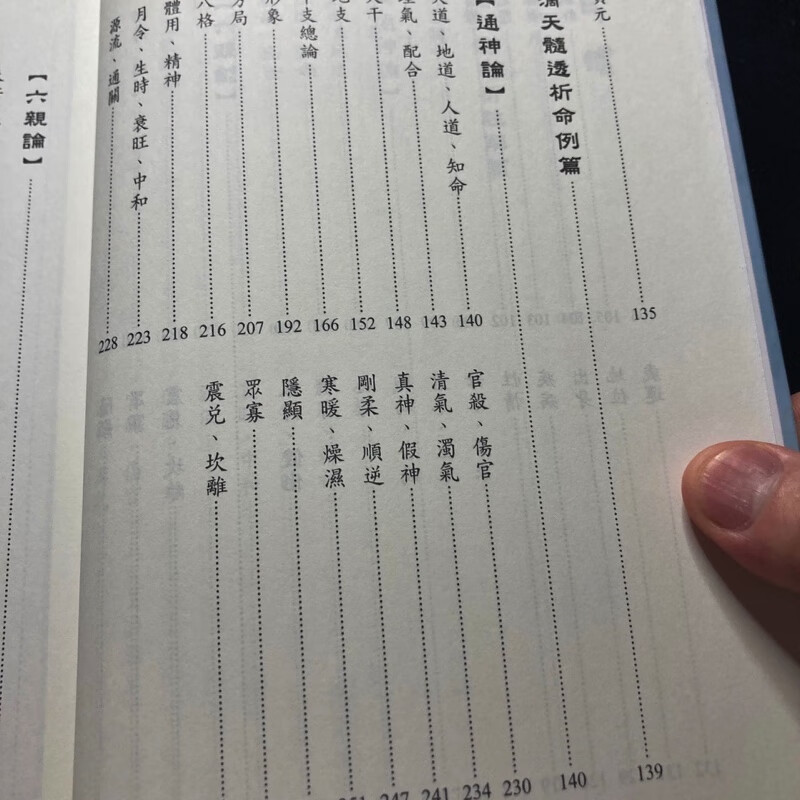 元 135
滴天髓透析命例篇 139
【通神論】 140
天道、地道、人道、知命 140
理氣、配合 143
天干 148
地支 152
干支總論 166
形象 192
方局 207
八格 216
體用、精神 218
月令、生時、衰旺、中和 223
源流、通關 228
官殺、傷官 230
清氣、濁氣 234
真神、假神 241
剛柔、順逆 247
寒暖、燥濕
隱顯
眾寡
震兌、坎離
【六親論】